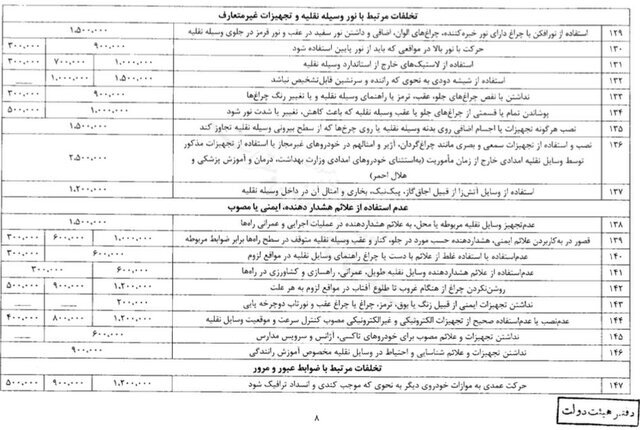 تخلفات مرتبط با نور وسیله نقلیه و تجهیزات غیرمتعارف
۱۲۹ استفاده از نورافکن یا چراغ دارای نور خیره‌کننده، چراغ‌های الوان، اضافی و داشتن نور سفید در عقب و نور قرمز در جلوی وسیله نقلیه ۱،۵۰۰،۰۰۰
۱۳۰ حرکت با نور بالا در مواقعی که باید از نور پایین استفاده شود ۹۰۰،۰۰۰ ۳۰۰،۰۰۰
۱۳۱ استفاده از لاستیک‌های خارج از استاندارد وسیله نقلیه ۱،۰۰۰،۰۰۰ ۷۰۰،۰۰۰ ۳۰۰،۰۰۰
۱۳۲ استفاده از شیشه دودی به نحوی که راننده و سرنشین قابل‌تشخیص نباشد ۱،۵۰۰،۰۰۰ ۱،۰۰۰،۰۰۰ ــــ
۱۳۳ نداشتن یا نقص چراغ‌های جلو، عقب، ترمز یا راهنمای وسیله نقلیه و یا تغییر رنگ چراغ‌ها ۹۰۰،۰۰۰ ۳۰۰،۰۰۰
۱۳۴ پوشاندن تمام یا قسمتی از چراغ‌های جلو یا عقب وسیله نقلیه که باعث کاهش، تغییر یا شدت نور شود ۱،۰۰۰،۰۰۰ ۵۰۰،۰۰۰
۱۳۵ نصب هرگونه تجهیزات یا اجسام اضافی روی بدنه وسیله نقلیه یا روی چرخ‌ها که از سطح بیرونی وسیله نقلیه تجاوز کند ۱،۵۰۰،۰۰۰
۱۳۶ نصب و استفاده از تجهیزات سمعی و بصری مانند چراغ‌گردان، آژیر و امثالهم در خودروهای غیرمجاز یا استفاده از تجهیزات مذکور
توسط وسایل نقلیه امدادی خارج از زمان مأموریت (به‌استثنای خودروهای امدادی وزارت بهداشت، درمان و آموزش پزشکی و ۲،۵۰۰،۰۰۰
هلال احمر)
۱۳۷ استفاده از وسایل آتش‌زا از قبیل اجاق‌گاز، پیک‌نیک، بخاری و امثال آن در داخل وسیله نقلیه ۱،۲۰۰،۰۰۰
عدم استفاده از علائم هشدار دهنده، ایمنی یا مصوب
۱۳۸ عدم‌تجهیز وسایل نقلیه مربوطه یا محل، به علائم هشداردهنده در عملیات اجرایی و عمرانی راه‌ها ۱،۵۰۰،۰۰۰
۱۳۹ قصور در به‌کاربردن علائم ایمنی، هشداردهنده حسب مورد در جلو، کنار و عقب وسیله نقلیه متوقف در سطح راه‌ها برابر ضوابط مربوطه ۱،۰۰۰،۰۰۰ ۶۰۰،۰۰۰ ۳۰۰،۰۰۰
۱۴۰ عدم‌استفاده یا استفاده غلط از علائم با دست یا چراغ راهنمای وسایل نقلیه در مواقع لزوم ۶۰۰،۰۰۰ ۳۰۰،۰۰۰
۱۴۱ عدم‌استفاده از علائم هشداردهنده وسایل نقلیه طویل، عمرانی، راهسازی و کشاورزی در راه‌ها ۶۰۰،۰۰۰ ۳۰۰،۰۰۰
۱۴۲ روشن‌نکردن چراغ از هنگام غروب تا طلوع آفتاب در مواقع لزوم به هر علت ۱،۲۰۰،۰۰۰ ۹۰۰،۰۰۰ ۵۰۰،۰۰۰
۱۴۳ نداشتن تجهیزات ایمنی از قبیل زنگ یا بوق، ترمز، چراغ یا چراغ عقب و نورتاب دوچرخه پایی ۲۰۰،۰۰۰ ــــ ــــ
۱۴۴ عدم‌نصب یا عدم‌استفاده صحیح از تجهیزات الکترونیکی و غیرالکترونیکی مصوب کنترل سرعت و موقعیت وسایل نقلیه ۱،۲۰۰،۰۰۰ ۸۰۰،۰۰۰ ۴۰۰،۰۰۰
۱۴۵ نداشتن تجهیزات و علائم مصوب برای خودروهای تاکسی، آژانس و سرویس مدارس ۶۰۰،۰۰۰ ــــ
۱۴۶ نداشتن تجهیزات و علائم شناسایی و احتیاط در وسایل نقلیه مخصوص آموزش رانندگی ۹۰۰،۰۰۰
تخلفات مرتبط با ضوابط عبور و مرور
۱۴۷ حرکت عمدی به موازات خودروی دیگر به نحوی که موجب کندی و انسداد ترافیک شود ۱،۲۰۰،۰۰۰ ۹۰۰،۰۰۰ ۵۰۰،۰۰۰
۸
دفتر هیئت دولت